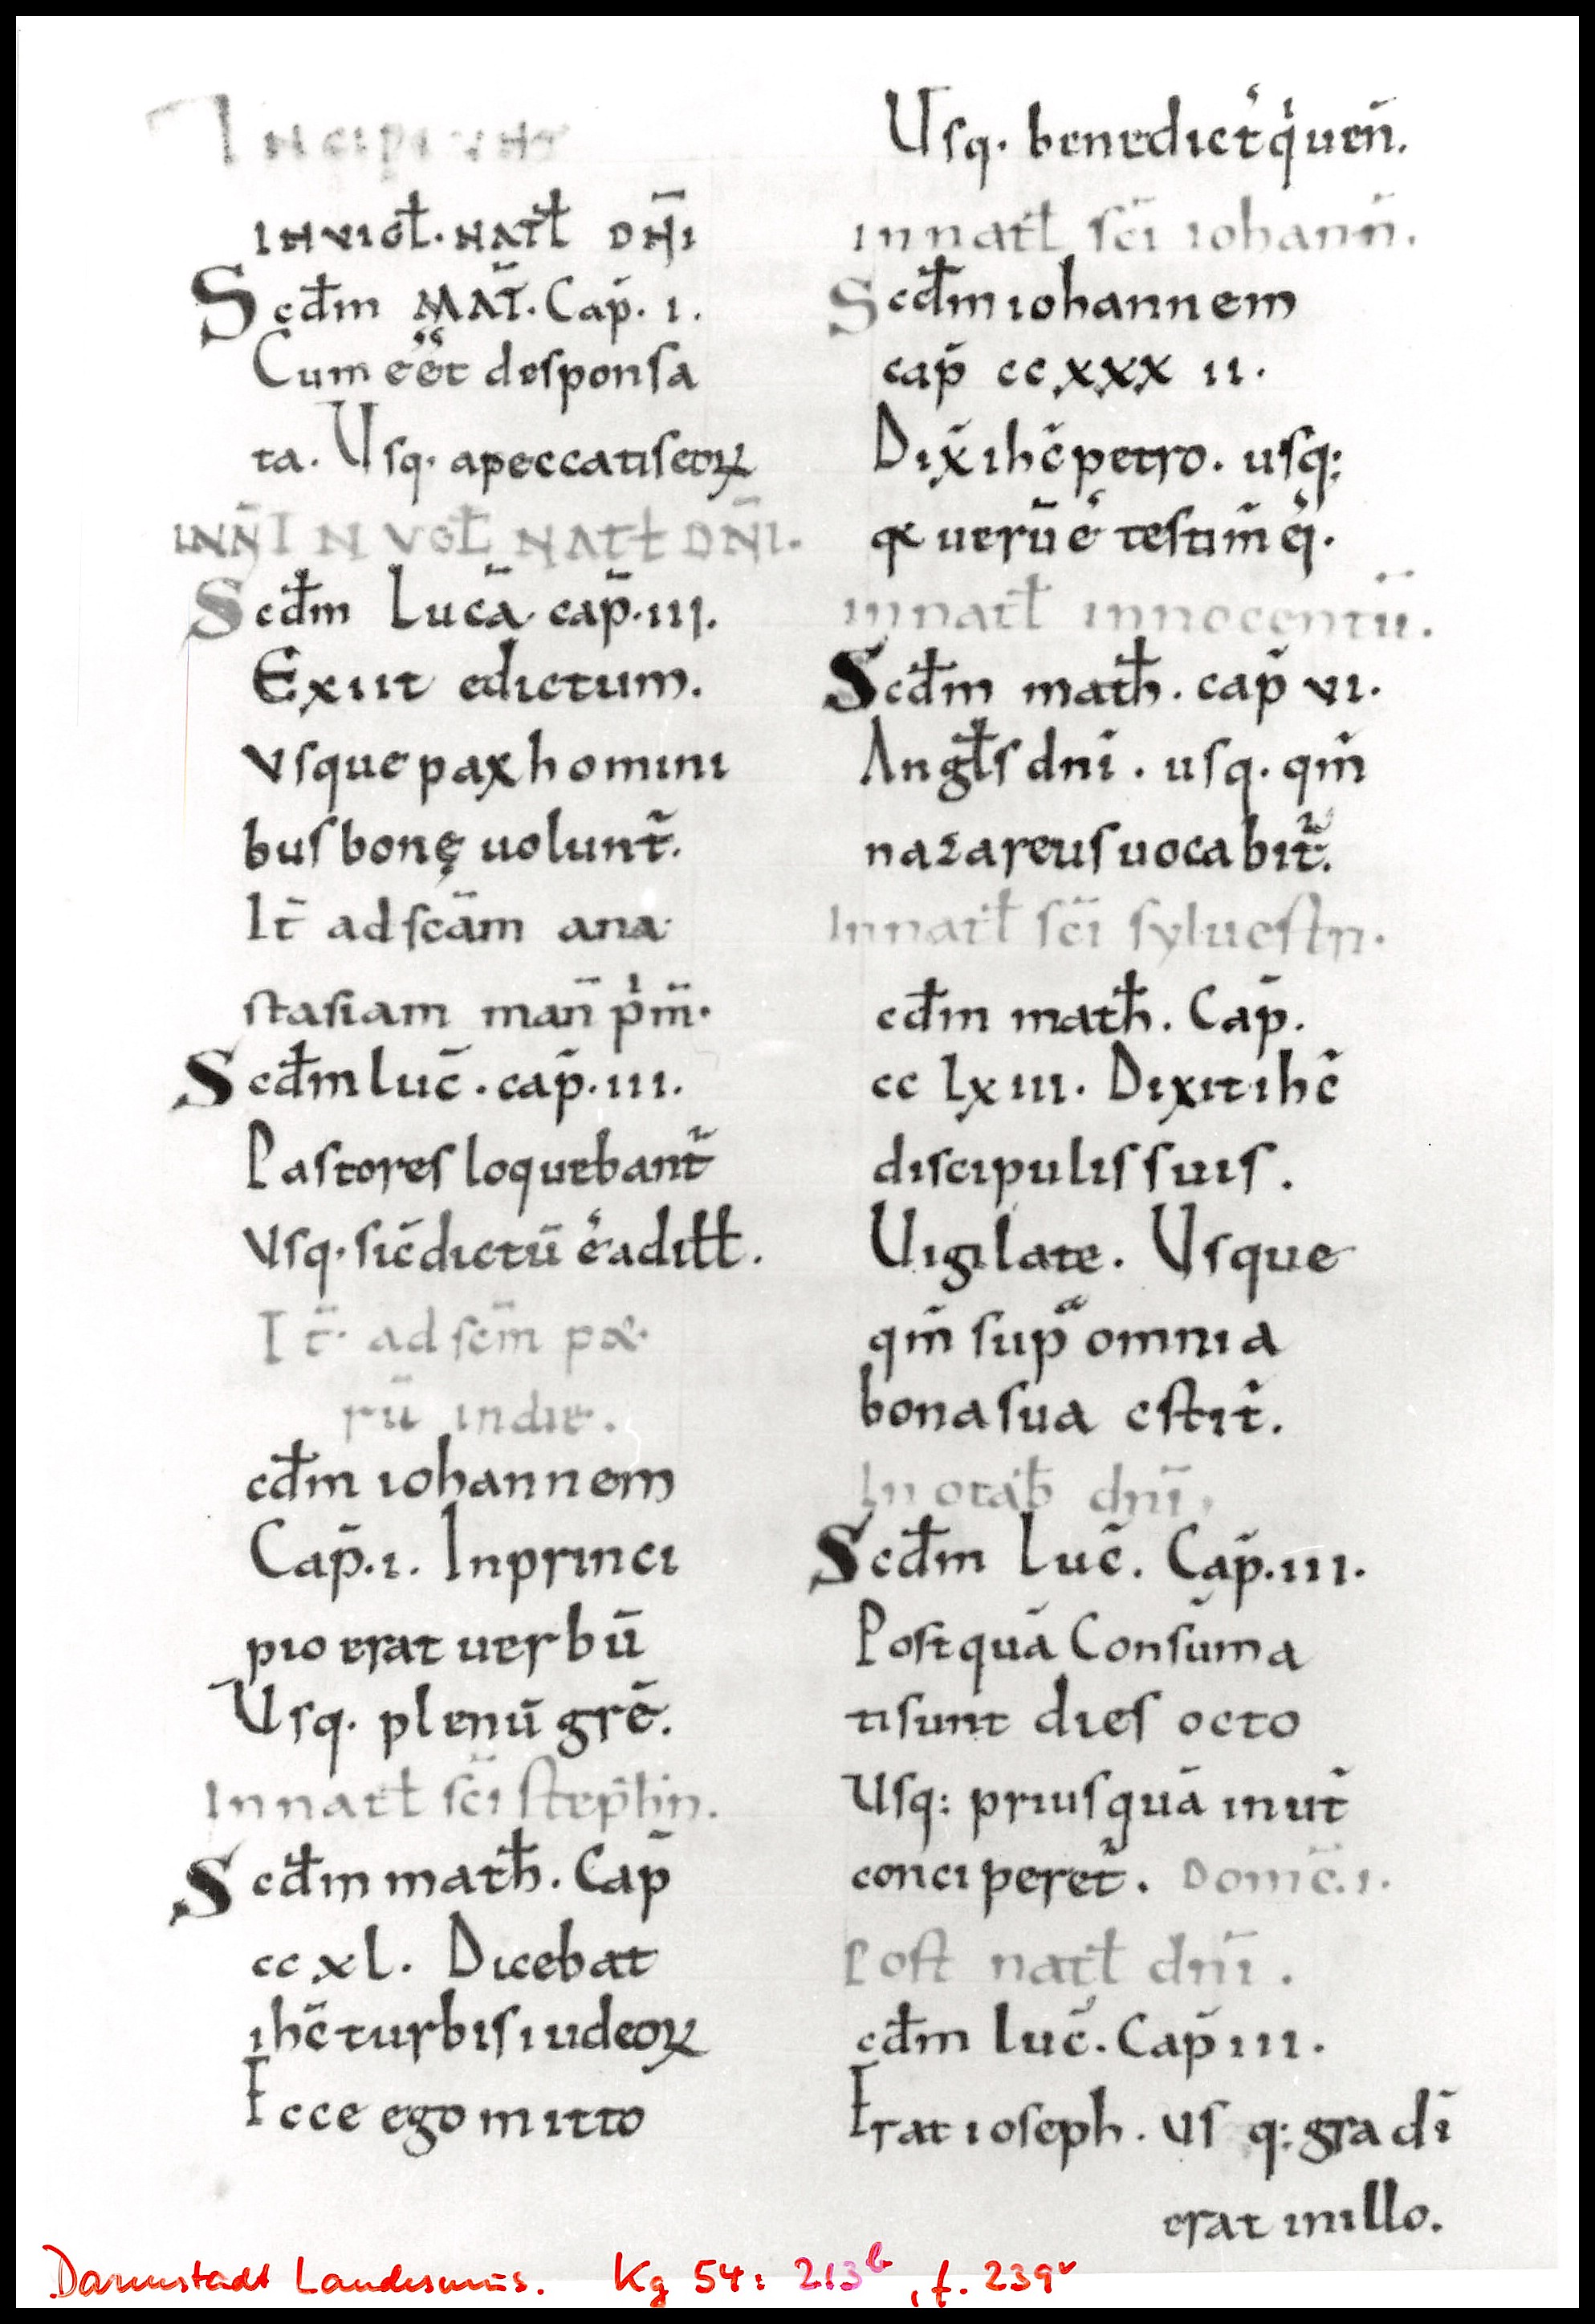 Incipiunt
INVIGŁ. NATŁ DN̄I
Scđm MAT̄. Cap̄. I.
Cum eēt desponsa
ta. Usq. apeccatiseoꝝ
INN̄ IN VGŁ NATŁ DN̄I.
Scđm Lucā cap̄. III.
Exiit edictum.
Usque pax homini
bus bonę uolunt̄.
It̄ ad scām ana
stasiam man̄ pⁱm̄.
Scđm luc̄. cap̄. III.
Pastores loquebant̄
Usq. sic̄ dictū ē adiłł.
It̄. ad scm̄ pæ
rū indie.
cđm iohannem
Cap̄. I. Inprinci
pio erat uerbū
Usq. plenū grē.
In natł sc̄i steph̄n.
Scđm matħ. Cap̄
ccxl. Dicebat
ihc̄ turbis iudeoꝝ
Ecce ego mitto
Usq. benedict' qⁱ uen̄.
in natł sc̄i iohann̄.
Scđm iohannem
cap̄ ccxxx II.
Dix̄ ihc̄ petro. usq:
qꝫ uerū ē testim̄ eⁱ.
in natł innocentiū.
Scđm matħ. cap̄ VI.
Angłs dn̄i. usq. qm̄
nazareus uocabit̄.
In natł sc̄i syluestri.
cđm matħ. Cap̄.
cc lxiii. Dixit ihc̄
discipulis suis.
Uigilate. Usque
qm̄ supᵃ omnia
bona sua c̄stit̄.
In octaƀ dn̄i.
Scđm Luc̄. Cap̄. III.
Postquā Consūma
ti sunt dies octo
Usq: priusquā inut̄
conciperet̄. Domc̄. I.
Post natł dn̄i.
cđm luc̄. Cap̄ III.
Erat ioseph. us q: gra dī
erat inillo.
Darmstadt Landesmus. Kg 54: 213b, f. 239v